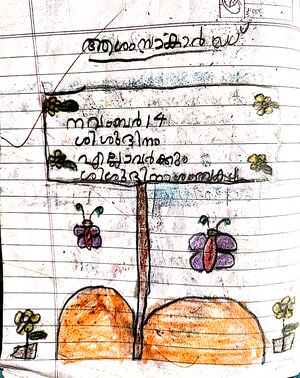 ആശംസാകാർഡ്
നവംബർ 14
ശിശുദിനം
എല്ലാവർക്കും
ശിശുദിനാശംസകൾ